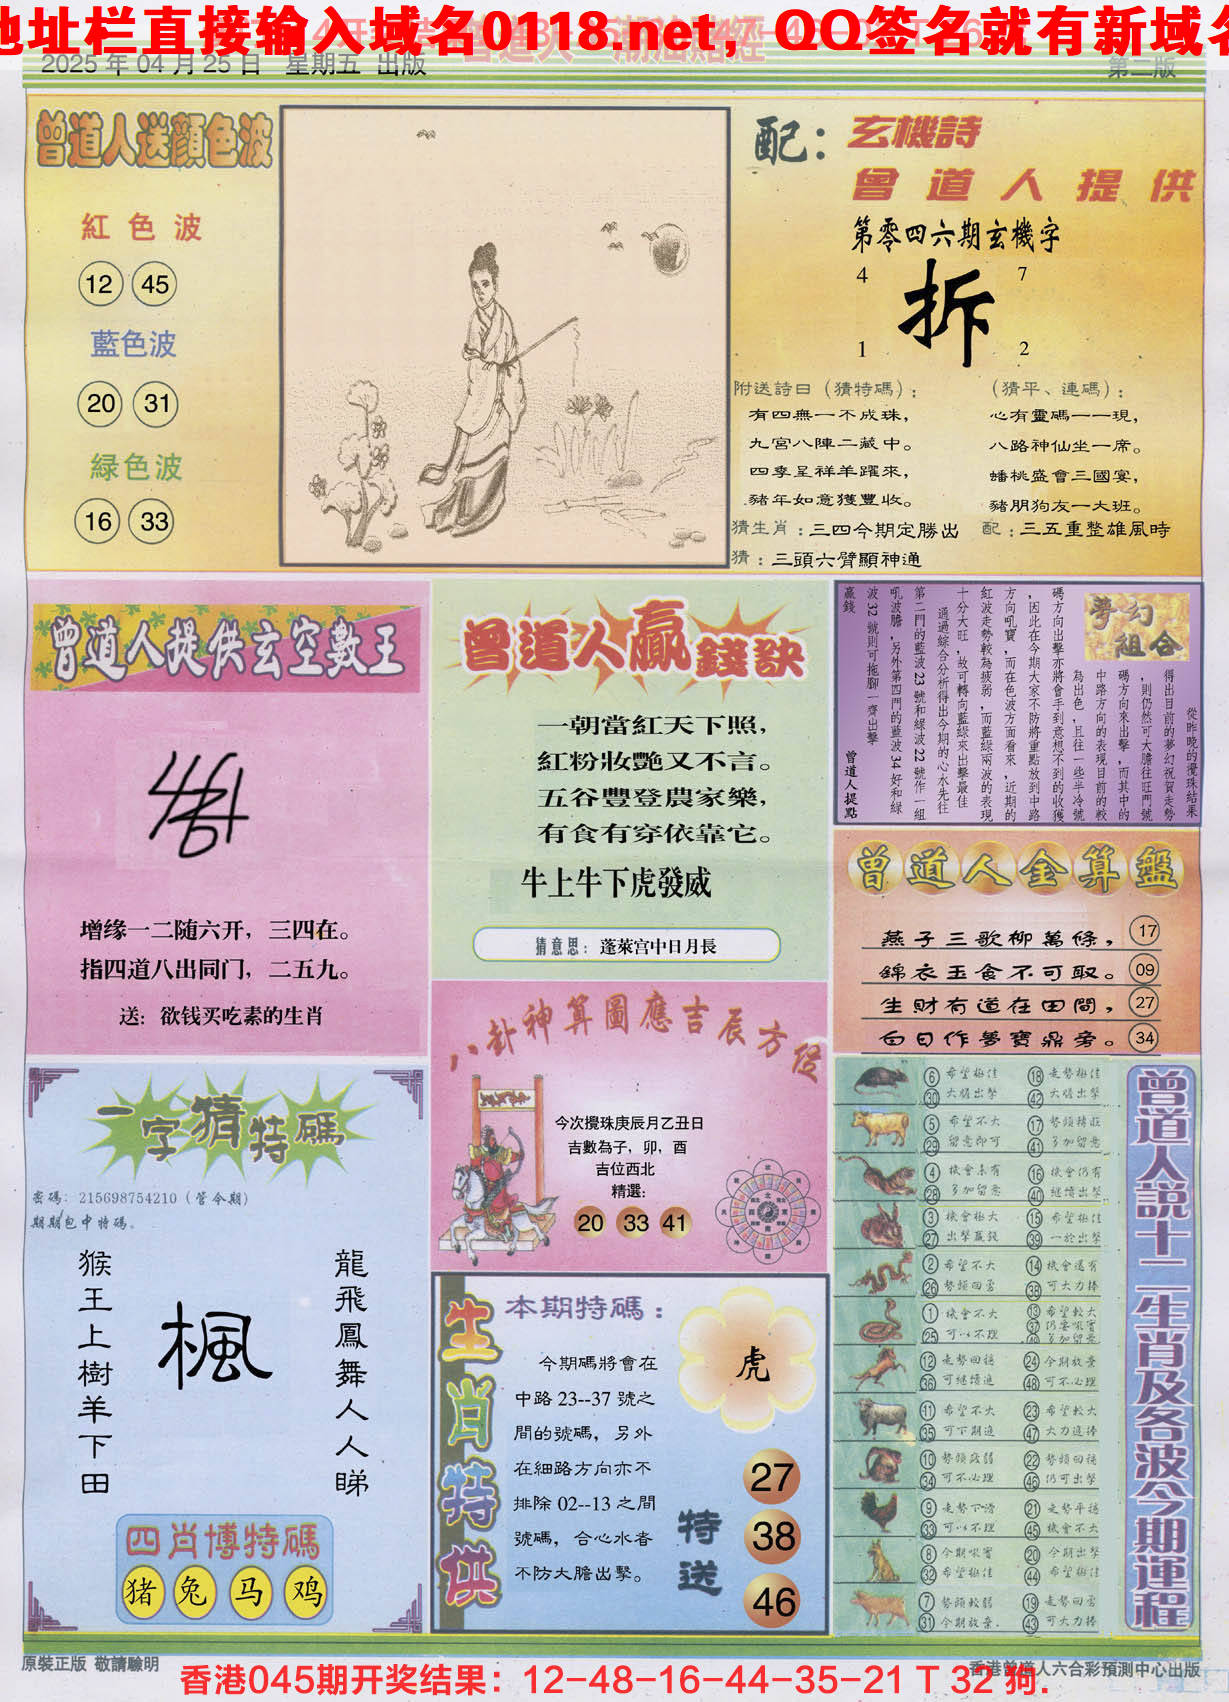 地址栏直接输入域名0118.net，QQ签名就有新域名
2025 年 04 月 25 日　星期五　出版
第二版
曾道人送顏色波
紅色波
12 45
藍色波
20 31
緑色波
16 33
配：
玄機詩
曾道人提供
第零四六期玄機字
4 7
拆
1 2
附送詩曰（猜特碼）：
有四無一不成珠，
九宮八陣二藏中。
四季呈祥羊躍來，
豬年如意獲豐收。
（猜平、連碼）：
心有靈碼一一現，
八路神仙坐一席。
蟠桃盛會三國宴，
豬朋狗友一大班。
猜生肖：三四今期定勝出
配：三五重整雄風時
猜：三頭六臂顯神通
曾道人提供玄空數王
增缘一二随六开，三四在。
指四道八出同门，二五九。
送：欲钱买吃素的生肖
曾道人贏錢訣
一朝當紅天下照，
紅粉妝艷又不言。
五谷豐登農家樂，
有食有穿依靠它。
牛上牛下虎發威
猜意思：蓬萊宮中日月長
夢幻組合
從昨晚的攪珠結果
得出目前的夢幻祝賀走勢
，則仍然可大膽往旺門號
碼方向來出擊，而其中的
中路方向的表現目前的較
為出色，且往一些半冷號
碼方向出擊亦將會手到意想不到的收獲
，因此在今期大家不防將重點放到中路
方向吼寶，而在色波方面看來，近期的
紅波走勢較為疲弱，而藍綠兩波的表現
十分大旺，故可轉向藍綠來出擊最佳
通過綜合分析得出今期的心水先往
第二門的藍波 23 號和綠波 22 號作一組
吼波膽，另外第四門的藍波 34 好和綠
波 32 號則可拖腳一齊出擊
贏錢
曾道人提點
曾道人金算盤
燕子三歌柳萬條， 17
錦衣玉食不可取。 09
生財有道在田間， 27
白日作夢寶鼎旁。 34
八卦神算圖應吉辰方位
今次攪珠庚辰月乙丑日
吉數為子，卯，酉
吉位西北
精選：
20 33 41
一字猜特碼
密碼：215698754210（管今期）
期期包中特碼。
猴王上樹羊下田
楓
龍飛鳳舞人人睇
四肖博特碼
猪 兔 马 鸡
生肖特供
本期特碼：
虎
今期碼將會在
中路 23--37 號之
間的號碼，另外
在細路方向亦不
排除 02--13 之間
號碼，合心水者
不防大膽出擊。
特送
27
38
46
曾道人說十二生肖及各波今期運程
6 希望極佳 18 走勢極佳
30 大膽出擊 42 大膽出擊
5 希望不大 17 勢頭轉旺
29 留意即可 41 多加留意
4 機會未有 16 機會仍有
28 多加留意 40 繼續出擊
3 機會極大 15 希望極佳
27 出擊贏錢 39 一於出擊
2 希望不大 14 機會還有
26 勢頭回落 38 可大力捧
1 機會不大 13 希望較大
25 可以不理 37
12 走勢回穩 24 今期放棄
36 可繼續追 48 可不必理
11 希望不大 23 希望較大
35 可下期追 47 大力追捧
10 勢頭疲弱 22 勢頭回穩
34 可不必理 46 仍可出擊
9 走勢下滑 21 走勢平穩
33 可以不理 45 機會不大
8 今期吼寶 20 今期出擊
32 希望極佳 44 希望極佳
7 勢頭較弱 19 走勢回落
31 今期放棄. 43 可大力捧
原裝正版 敬請驗明
香港曾道人六合彩預測中心出版
香港045期开奖结果：12-48-16-44-35-21 T 32 狗.